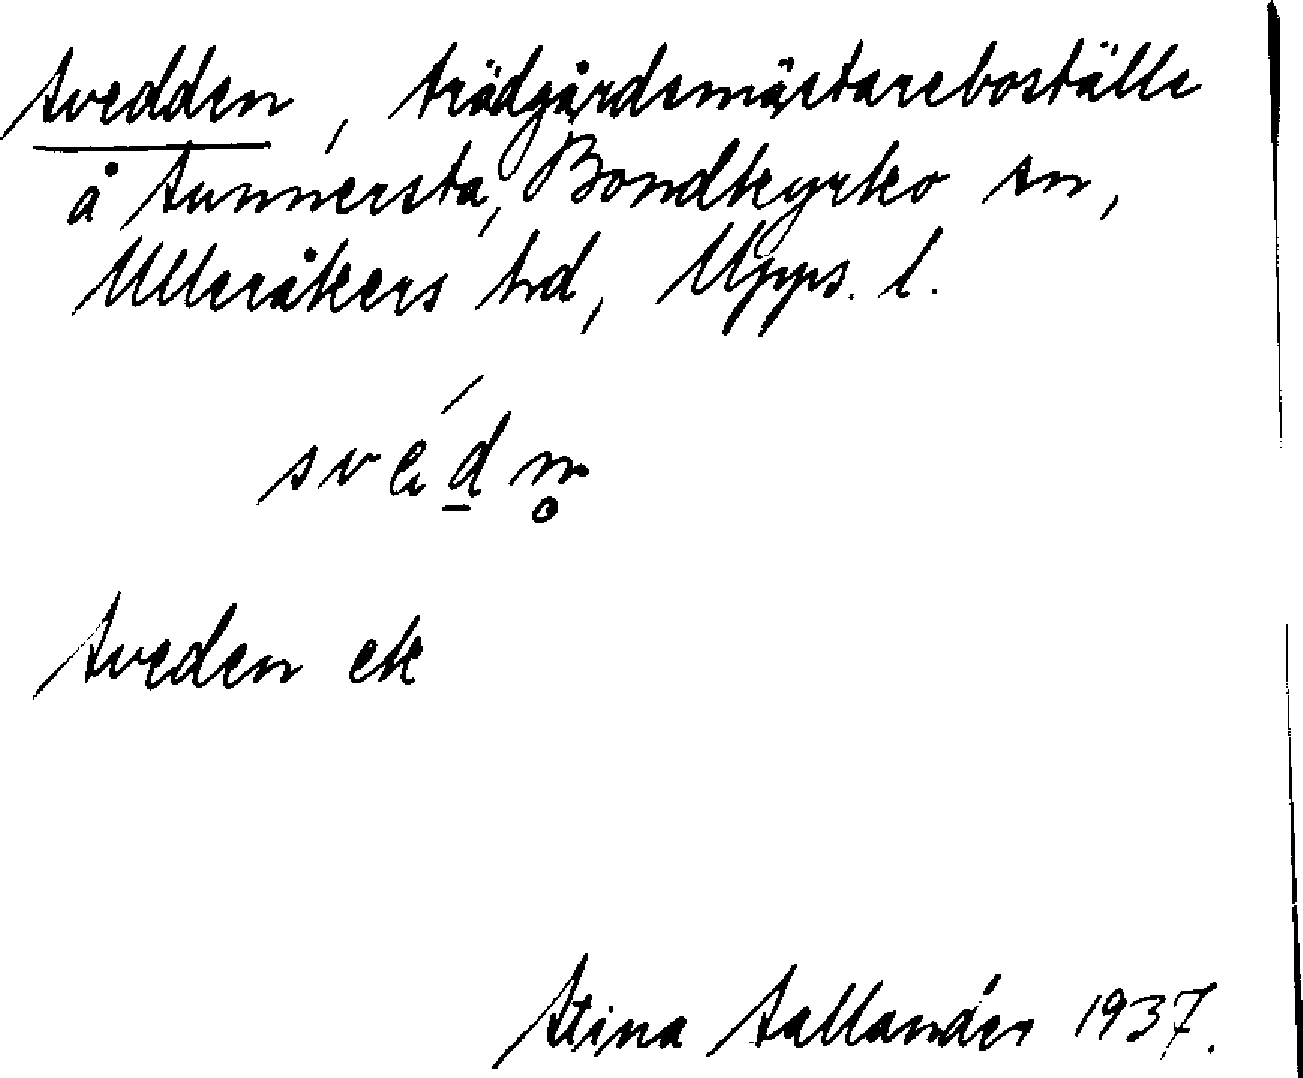 Svedden, trädgårdsmästareboställe
å Sunnersta, Bondkyrko sn,
Ulleråkers hd, Upps. l.
svéd̠n̥
Sveden ek
Stina Sallandér 1937.